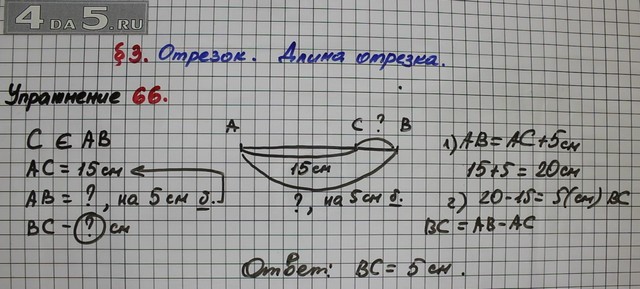 4 ДА 5.RU
§3. Отрезок. Длина отрезка.
Упражнение 66.
C ∈ AB
AC = 15 см
AB = ?, на 5 см б.
BC - ? см
A C ? B
15 см
?, на 5 см б.
1) AB = AC + 5 см
15 + 5 = 20 см
2) 20 - 15 = 5 (см) BC
BC = AB - AC
Ответ: BC = 5 см.